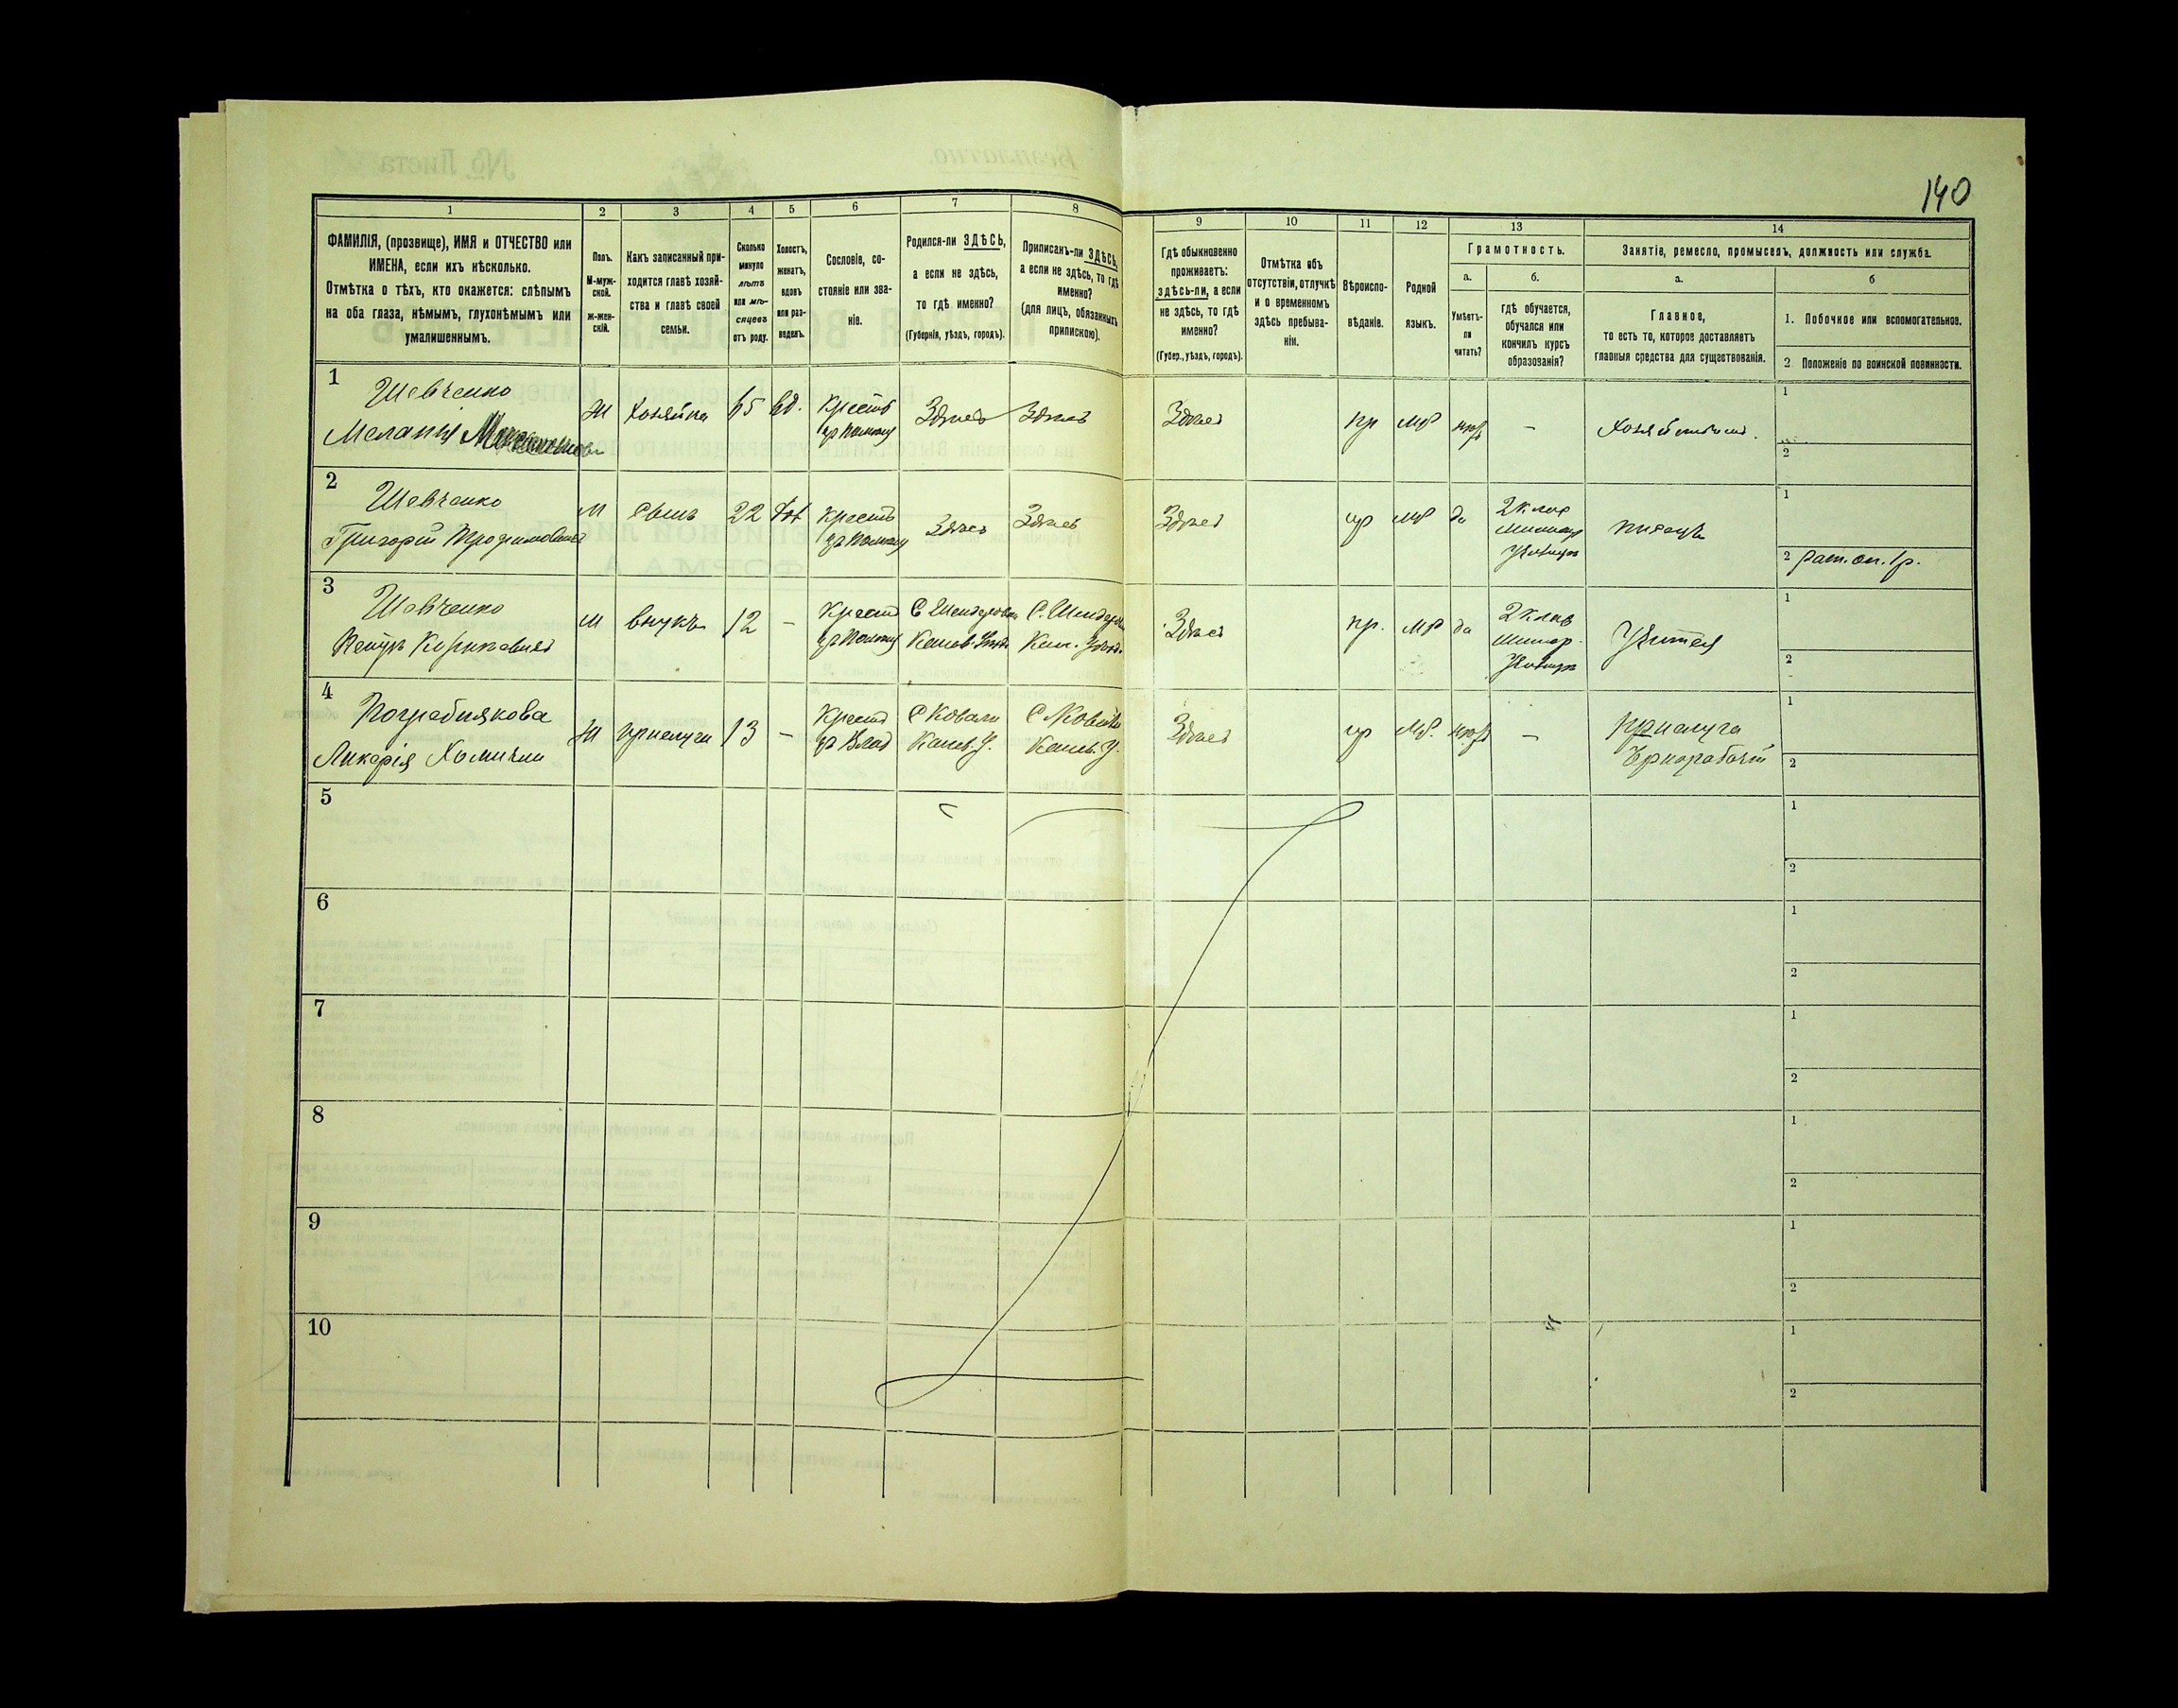 140
1
2
3
4
5
6
7
8
9
10
11
12
13
14
ФАМИЛІЯ, (прозвище), ИМЯ и ОТЧЕСТВО или
ИМЕНА, если ихъ нѣсколько.
Отмѣтка о тѣхъ, кто окажется: слѣпымъ
на оба глаза, нѣмымъ, глухонѣмымъ или
умалишеннымъ.
Полъ.
М-муж-
ской.
ж-жен-
скій.
Какъ записанный при-
ходится главѣ хозяй-
ства и главѣ своей
семьи.
Сколько
минуло
лѣтъ
или мѣ-
сяцевъ
отъ роду.
Холостъ,
женатъ,
вдовъ
или раз-
веденъ.
Сословіе, со-
стояніе или зва-
ніе.
Родился-ли ЗДѢСЬ,
а если не здѣсь,
то гдѣ именно?
(Губернія, уѣздъ, городъ).
Приписанъ-ли ЗДѢСЬ,
а если не здѣсь, то гдѣ
именно?
(для лицъ, обязанныхъ
припискою).
Гдѣ обыкновенно
проживаетъ:
здѣсь-ли, а если
не здѣсь, то гдѣ
именно?
(Губер., уѣздъ, городъ).
Отмѣтка объ
отсутствіи, отлучкѣ
и о временномъ
здѣсь пребыва-
ніи.
Вѣроиспо-
вѣданіе.
Родной
языкъ.
Грамотность.
а.
б.
Умѣетъ-
ли
читать?
гдѣ обучается,
обучался или
кончилъ курсъ
образованія?
Занятіе, ремесло, промыселъ, должность или служба.
а.
б
Главное,
то есть то, которое доставляетъ
главныя средства для существованія.
1. Побочное или вспомогательное.
2. Положеніе по воинской повинности.
1
Шевченко
Меланія
Ж
Хозяйка
65
вд.
Крест
Здѣсь
Здѣсь
Здѣсь
пр
мр
–
1
2
2
Шевченко
Григорій Трофимовичъ
М
сынъ
22
хол
Крест
Здѣсь
Здѣсь
Здѣсь
пр
мр
да
2 клас
писецъ
1
2 рат. оп. 1 р.
3
Шевченко
М
внукъ
12
–
Крест
Канев. Уѣзд
Кан. Уѣзд.
Здѣсь
пр.
мр
да
2 клас
Учится
1
2
4
Погребнякова
Ликерія Хомична
Ж
прислуга
13
–
Крест
Канев. У.
Канев. У.
Здѣсь
пр
мр.
–
прислуга
1
2
5
1
2
6
1
2
7
1
2
8
1
2
9
1
2
10
1
2